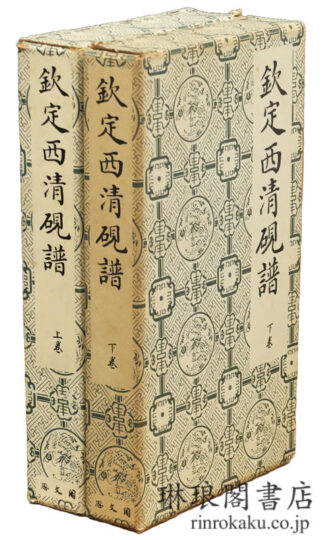 欽定西清硯譜
上巻
啓文閣
欽定西清硯譜
下巻
啓文閣
欽定西清硯譜
下巻
琳琅閣書店
rinrokaku.co.jp